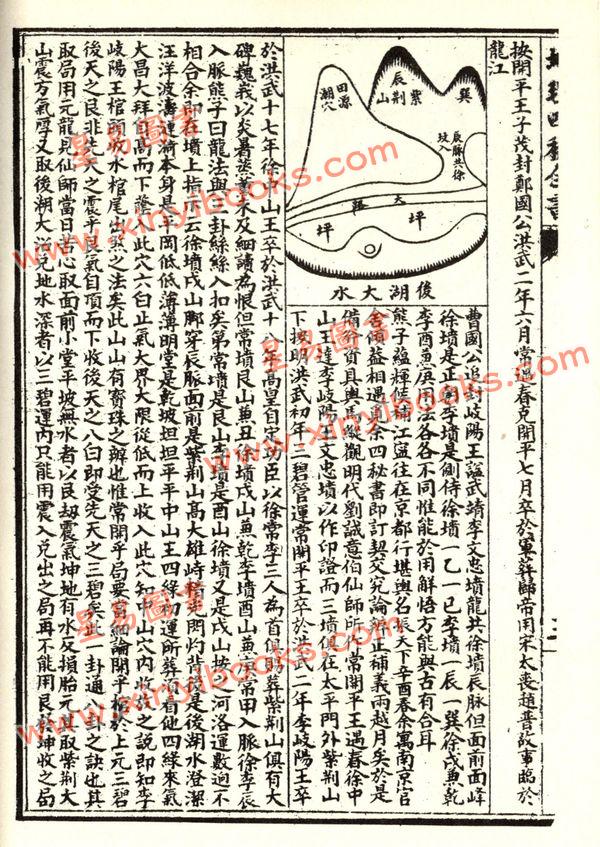 按開平王子茂封鄭國公洪武二年六月常遇春克開平七月卒於軍葬歸帝用宋太喪趙普故事臨於
龍江
巽
紫荆山
辰
田源
潮穴
辰脉共徐
坟入
大
羅
坪
坪
後湖大水
曹國公追封岐陽王諡武靖李文忠墳龍共徐墳辰脉但面前面峰
徐墳是正朝李墳是側侍徐墳一乙一巳李墳一辰一巽徐戌兼乾
李酉兼庚用法各各不同惟能於用解悟方能與古有合耳
熊子蘊輝候補江寧往在京都行堪輿名振天下辛酉春余寓南京官
舍傾蓋相遇見余四秘書即訂契交究論辨正補義兩越月矣於是
備資具與馬 觀明代劉誠意伯仙師所 常開平王遇春徐中
山王達李岐陽王文忠墳以作印證而三墳俱在太平門外紫荆山
下按明洪武初年三碧管運常開平王卒於洪武二年李岐陽王卒
於洪武十七年徐中山王卒於洪武十八年高皇自宋功臣以徐常李三人為首俱賜葬紫荆山俱有大
碑巍峩以炎暑蒸 未及細讀為恨但常墳艮山兼丑徐墳戌山兼乾李墳酉山兼庚常甲入脉徐李辰
入脉熊子曰龍法與三卦絲絲入扣矣第常墳是艮山李墳是酉山徐墳又是戌山按之河洛運數迥不
相合余即在墳上指示云徐墳戌山脚穿辰脉面前是紫荆山高大雄峙 閃灼背後是後湖水澄潔
汪洋波濤連漪本身是平岡低低薄薄明堂是乾坡坦坦平平中山王四綠初運所葬須看他四綠來氣
大昌大拜自高而下蔭此穴六白正氣大界大限從低而上收入此穴知中山穴内收放之說即知李
岐陽王棺頭收水棺尾出煞之法矣此山山有寳珠之辦也惟常開平局要當細論開平 於上元三碧
後天之艮非先天之震平艮氣自頂而下收後天之八白即受先天之三碧矣此一卦通八卦之訣也其
取局用元龍見仙師當日苦心取面前小堂平坡無水者以艮劫震氣坤地有水反損胎元其取紫荆大
山震方氣 又取後湖大 兌地水深者以三碧運内只能用震入兌出之局再不能用艮 坤收之局
星易圖書
www.xinyibooks.com
星易圖書
www.xinyibooks.com
星易圖書
www.xinyibooks.com